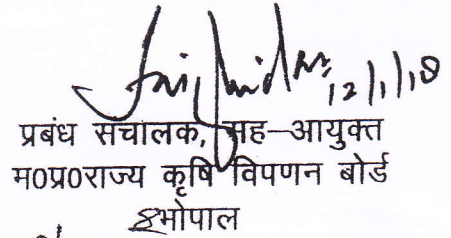 12/1/18
प्रबंध संचालक, सह–आयुक्त
म0प्र0राज्य कृषि विपणन बोर्ड
भोपाल